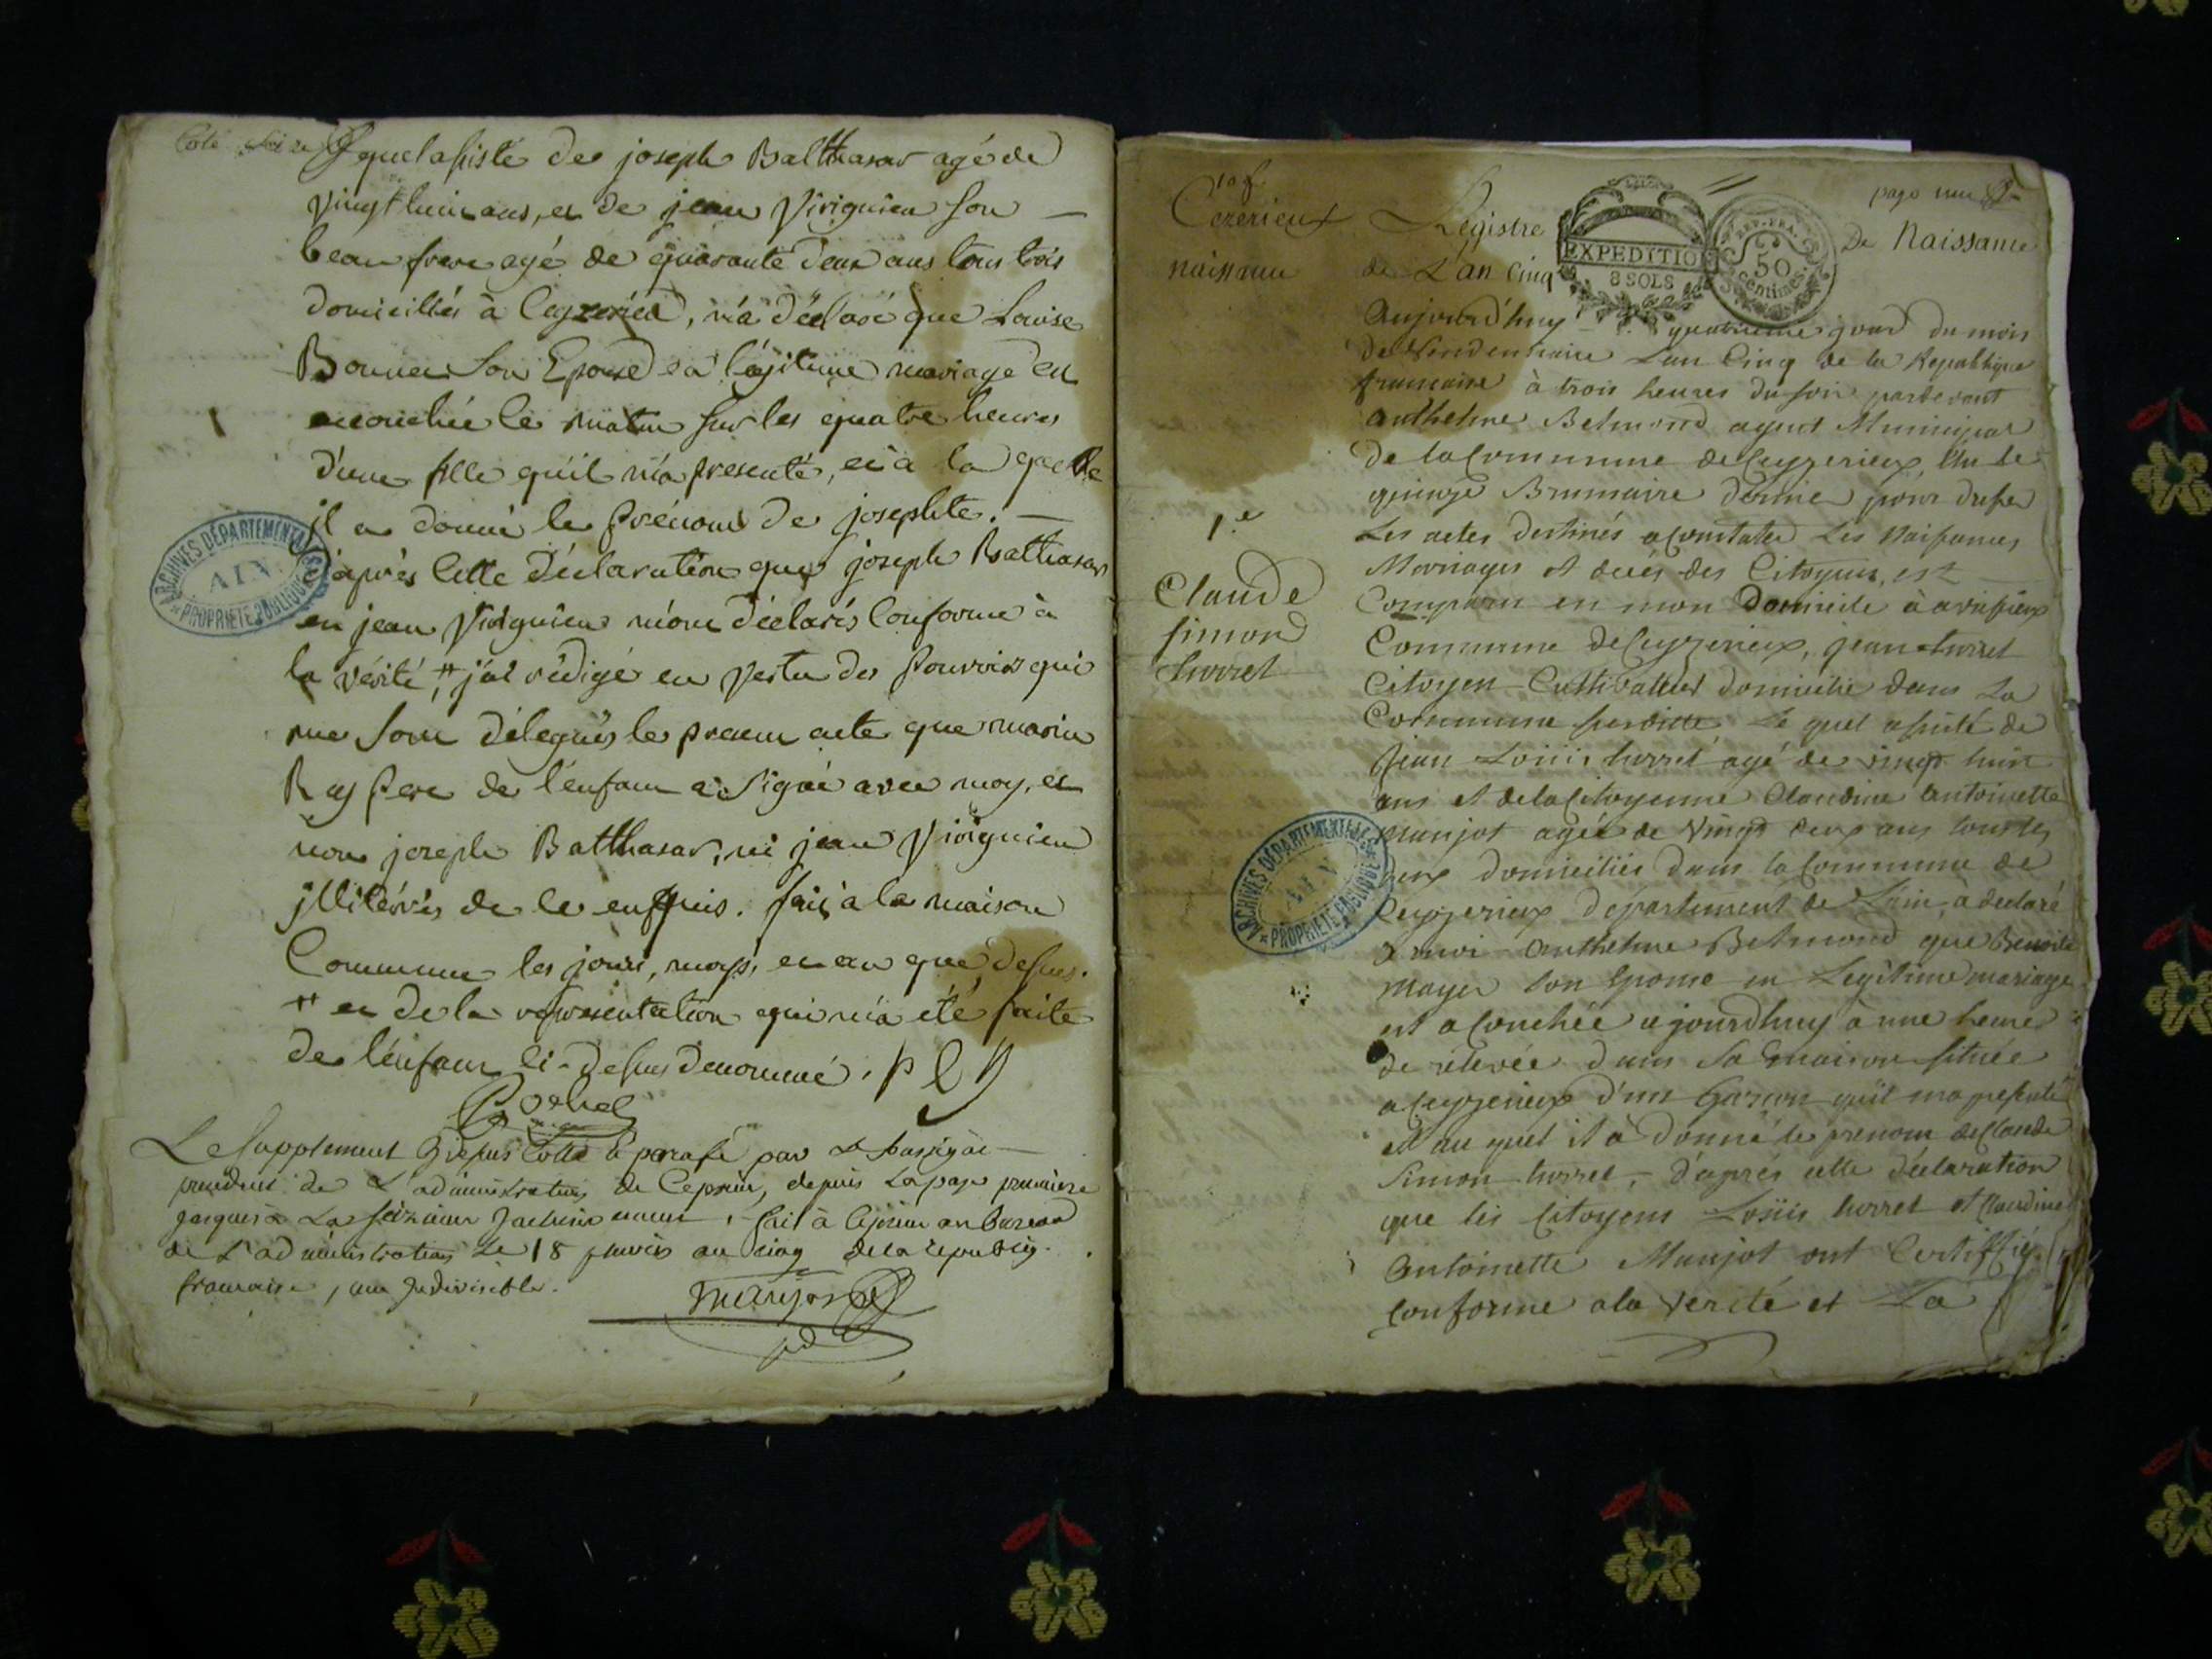 Coté
quel assisté de joseph Balthasar agé de
vingt huit ans, et de jean Viriguieu son
beau frere agé de quarante deux ans tous trois
domiciliés à Ceyzerieu, m'a déclaré que Louise
Bonnet son Epouse en légitime mariage est
accouchée le matin sur les quatre heures
d'une fille qu'il m'a presenté, et à la quelle
il a donné le prénom de josephte.
d'après cette déclaration que joseph Balthasar
et jean Viriguieu m'ont déclarés conforme à
la vérité, # j'ai rédigé en vertu des pouvoirs qui
me sont délegués le present acte que
Ray pere de l'enfant a signé avec moy, et
non joseph Balthasar, ni jean Viriguieu
illitérés de ce enquis. fait à la maison
Commune les jours, moys, et an que dessus.
# et de la representation qui m'a été faite
de l'enfant ci-dessus denommé.
Le supplement cotté et parafé par
president de L'administration de depuis La page premiere
jusques à La seizieme . fait à au bureau
de L'administration Le 18 an cinq de la républiq.
francaise, une Indivisible.
ARCHIVES DÉPARTEMENTALES
AIN
PROPRIÉTÉ PUBLIQUE
page une
Cezerieux
naissance
Registre De Naissance
de L'an Cinq
EXPEDITION
8 SOLS
REP. FRA.
50
Centimes
Aujourd'huy quatrieme jour du mois
de Vendemiaire L'an Cinq de la Republique
francaise à trois heures du soir pardevant
Anthelme Belmond agent Municipal
de la Commune de Ceyzerieux, élu le
quinze Brumaire dernier pour dresser
Les actes destinés a Constater Les Naissances,
Mariages et decés des Citoyens, est
Comparu en mon Domicile à avrissieux
Commune de Ceyzerieux, jean
Citoyen Cultivateur domicilié dans La
Commune susditte, Le quel assisté de
Jean Loüis agé de vingt huit
ans et de la Citoyenne Claudine antoinette
Munjot agée de vingt deux ans tous les
deux domiciliés dans la Commune de
Ceyzerieux département de L'ain, à declaré
à moi Anthelme Belmond que Benoite
Mayer son Epouse en Legitime mariage
est acouchée ajourdhuy à une heure
de relevée dans sa maison située
a Ceyzerieux d'un Garcon qu'il ma presenté
et au quel il a donné le prenom de Claude
Simon , d'après cette déclaration
que les Citoyens Loüis et Claudine
Antoinette Munjot ont Certiffié
conforme a la Verité et La
1.e
Claude
simond
ARCHIVES DÉPARTEMENTALES
AIN
PROPRIÉTÉ PUBLIQUE